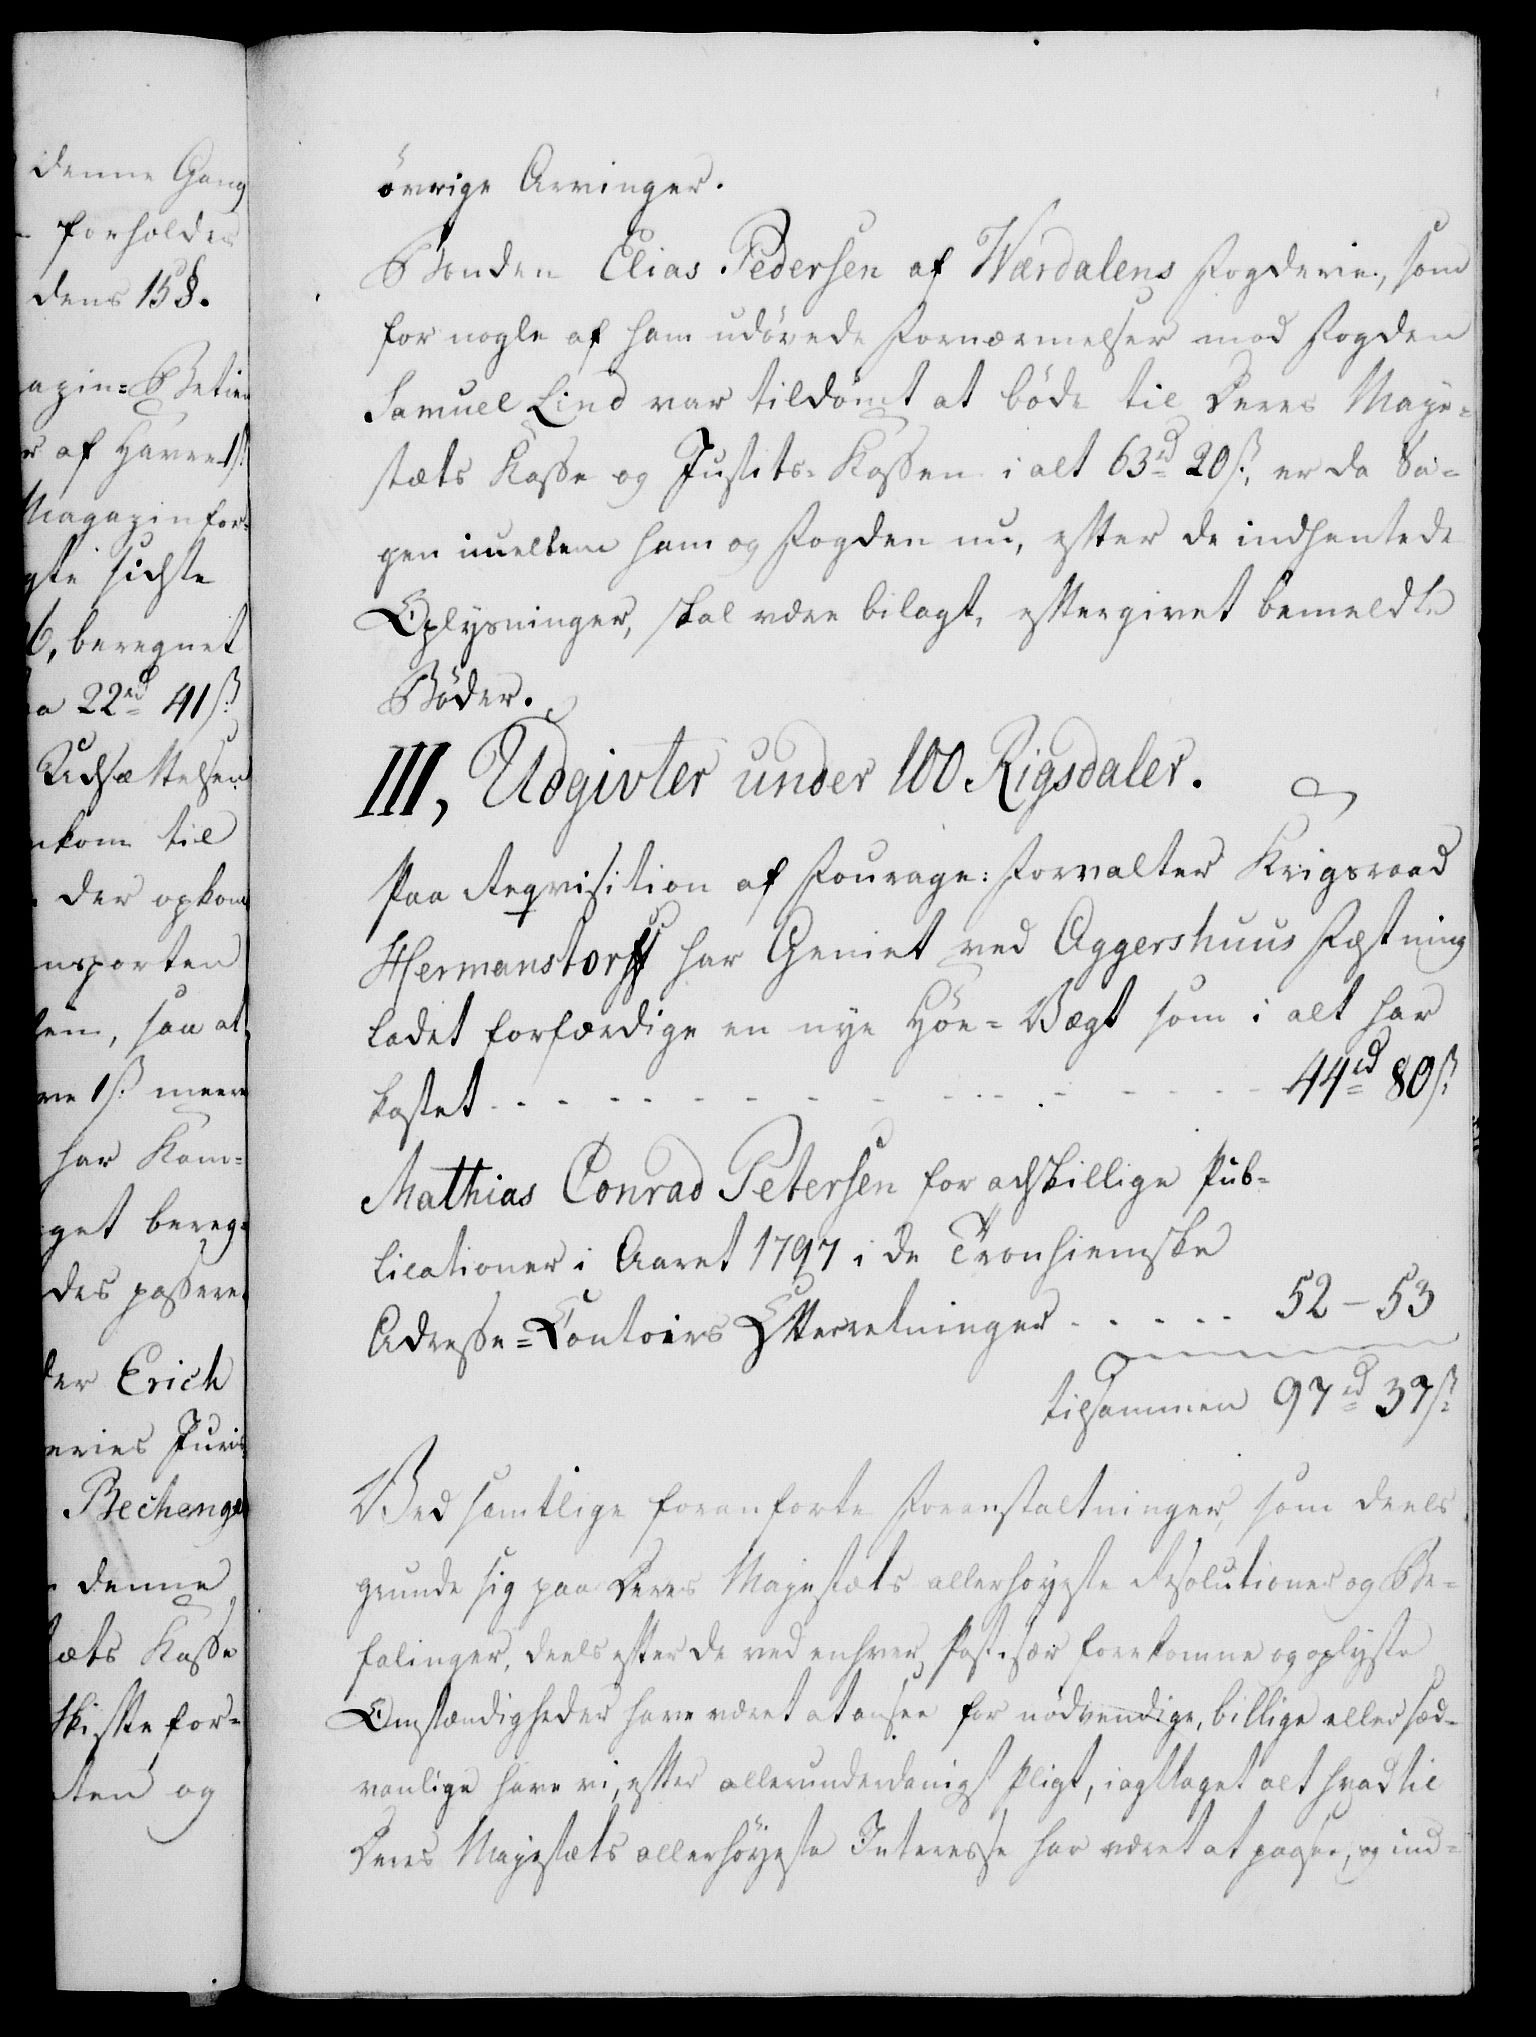 denne Gang
forholdes
dens 15 §.
agin=Betien
r af Havre 1 ß
Magazin for=
gte sidste
6, beregnet
a 22rd 41 ß:
Udsættelsen
nkom til
der opkom
nsporten
sen, saa at
re 1 ß: meere
har Kam=
get bereg=
des passere
der Erich
eries Juris
Bechenge
denne
tæts Kasse
Skifte for=
ten og
övrige Arvinger.
Bonden Elias Pedersen af Værdalens Fogderie, som
for nogle af ham udövede Fornærmelser mod Fogden
Samuel Lind var tildömt at böde til Deres Maje=
stæts Kasse og Justits=Kassen i alt 63rd 20 ß, er da Sa=
gen imellem ham og Fogden nu, efter de indhentede
Oplysninger, skal være bilagt, eftergivet bemeldte
Böder.
III, Udgivter under 100 Rigsdaler.
Paa Reqvisition af Fourage=Forvalter Krigsraad
Hermanstorff har Geniet ved Aggershuus Fæstning
ladet forfærdige en nye Höe=Vægt som i alt har
kostet - - - - - - - - - - - - - - 44rd 80 ß:
Mathias Conrad Petersen for adskillige Pub=
licationer i Aaret 1797 i de Tronhiemske
Adresse=Contoirs Efterretninger - - - - - 52 - 53
tilsammen 97rd 37 ß:
Ved samtlige foranförte Foranstaltninger, som deels
grunde sig paa Deres Majestæts allerhöyeste Resolutioner og Be=
falinger, deels efter de ved enhver Post især forekomne og oplyste
Omstændigheder have været at ansee for nödvendige, billige eller sæd=
vanlige have vi, efter allerunderdanigst Pligt, iagttaget alt hvad til
Deres Majestæts allerhöyeste Interesse har været at paasee, og ind=